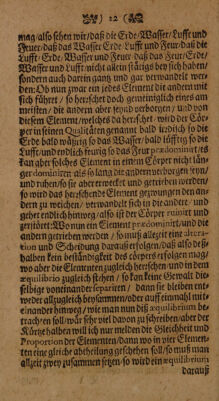 12
mag/ also sehen wir/ daß die Erde/ Wasser/ Lufft und
Feuer/ daß das Wasser Erde Lufft und Feur/ daß die
Lufft/ Erde/ Wasser und Feur/ daß das Feur/ Erde/
Wasser und Lufft nicht allein stätigs bey sich haben/
sondern auch darin gantz und gar verwandelt wer-
den: Ob nun zwar ein jedes Element die andern mit
sich führet/ so herschet doch gemeiniglich eines am
meisten/ die andern aber seynd verborgen/ und von
diesem Element/ welches da herschet/ wird der Cör-
per in seinen Qualitäten genannt bald irrdisch so die
Erde bald wäßrig so das Wasser/ bald lüfftig so die
Lufft/ und endlich feurig so das Feur prædominirt/ es
kan aber solches Element in einem Cörper nicht län-
ger dominiren als so lang die andern verborgen seyn/
und ruhen/ so sie aber erweckt und getrieben werden/
so wird das herschende Element gezwungen den an-
dern zu weichen/ verwandelt sich in die andere/ und
gehet endlich hinweg/ also ist der Cörper ruinirt und
zerstört. Wo nun ein Element prædominirt/ und die
andern getrieben werden/ so muß allezeit eine alte-
ration und Scheidung darauß erfolgen/ daß also deß-
halben kein beständigkeit des cörpers erfolgen mag/
wo aber die Elementen zugleich herschen und in dem
æquilibrio zugleich stehen/ so kan keine Gewalt die-
selbige voneinander separiren/ dann sie bleiben ent-
weder allzugleich beysammen/ oder auff einmahl mit-
einander hinweg/ wie man nun diß æquilibrium be-
trachten soll/ wär sehr viel davon zu schreiben/ aber der
Kürtze halben will ich nur melden die Gleichheit und
Proportion der Elementen/ dann wo in vier Elemen-
ten eine gleiche abtheilung geschehen soll/ so muß man
allzeit zwey zusammen setzen/ so wird ein æquilibrium
darauß